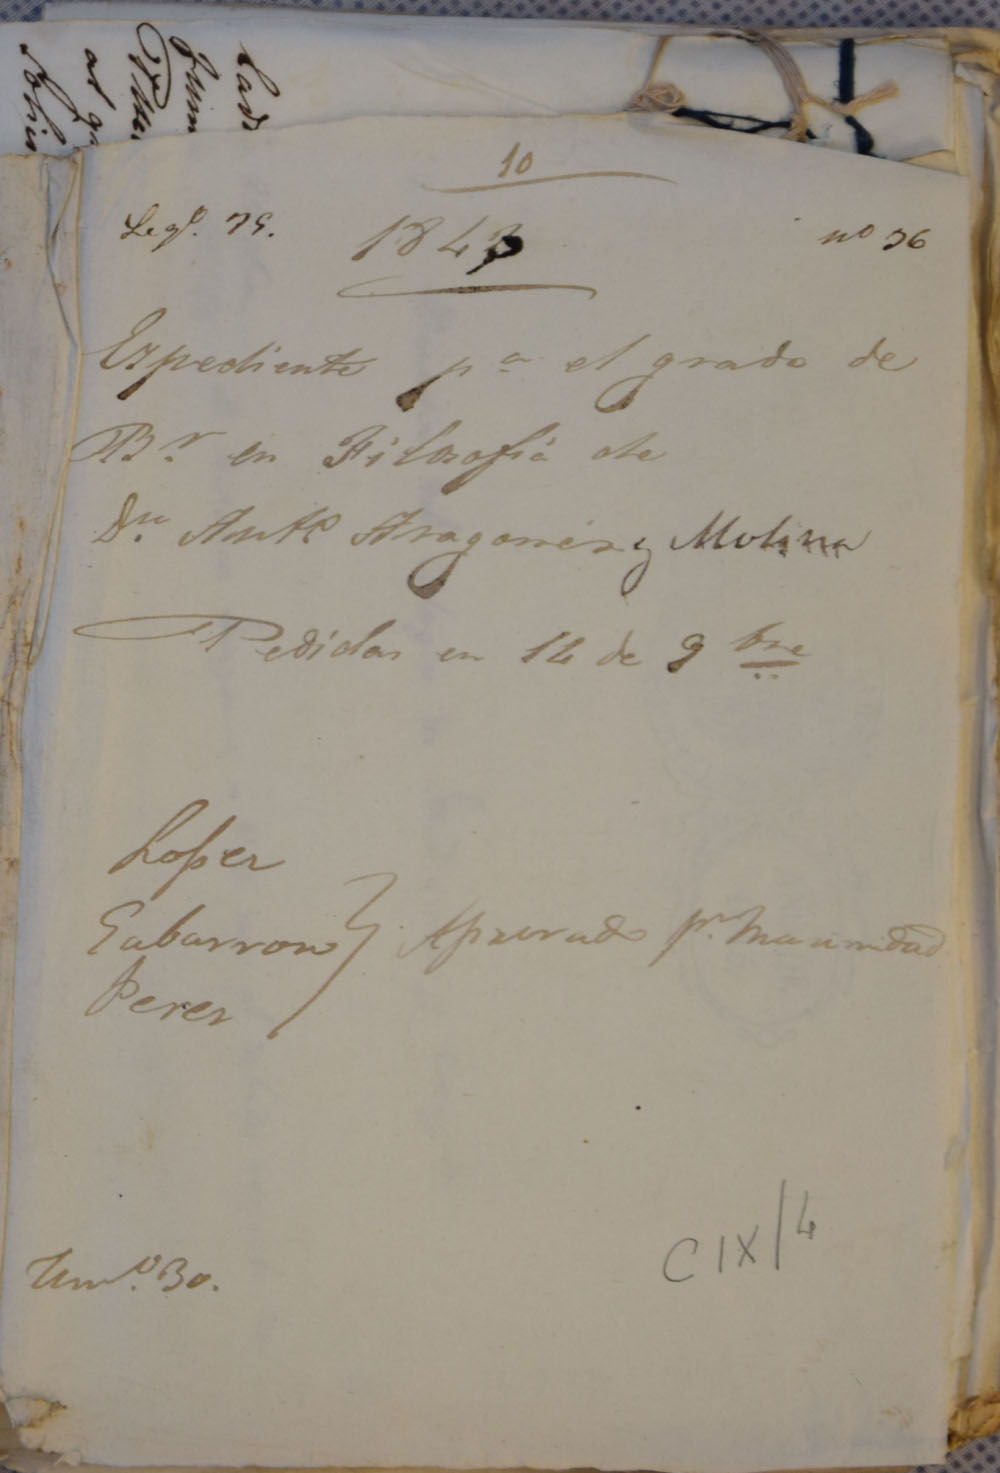 10
Legº. 75.
1843
nº 36
Espediente pª el grado de
Br. en Filosofia de
Dn. Antº Aragones y Molina
Pedidas en 12 de 9 bre
Lopez
Gabarron
Perez
Aprovado pr. Unanimidad
Numº. 30.
C IX/4